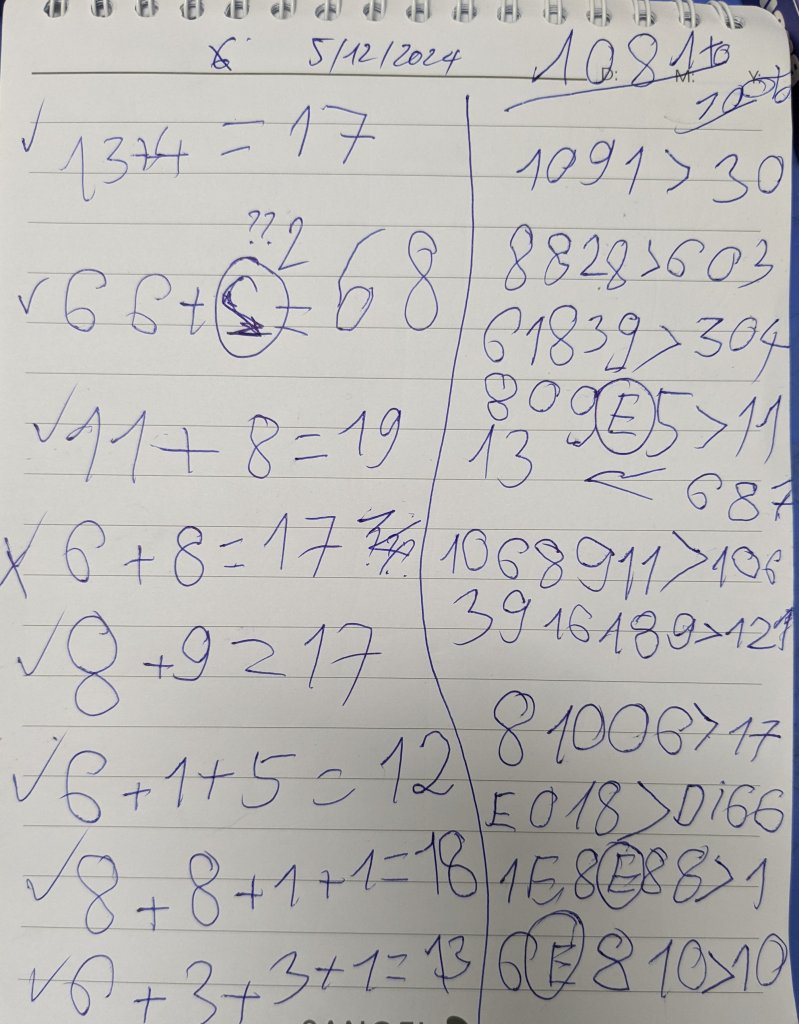 5/12/2024
1374 = 17
??2
66+S=68
11+8=19
6+8=17
8+9=17
6+1+5=12
8+8+1+1=18
6+3+3+1=13
1081 to
100 to
1091>30
8828>603
61839>304
809E5>11
13 < 687
1068911>106
3916189>121
81006>17
E018>Di66
1E8E88>1
6E810>10